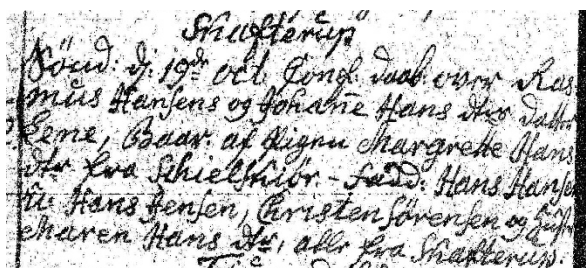 Snafterup
Sönd: d: 19de Oct. Conf. daab over Ras
mus Hansens og Johañe Hans dtrs datter
Lene, Baar: af Pigen Margrethe Hans
dtr fra Schielskiør - fadd: Hans Hansen
u: Hans Jensen, Christen Sørensen og
Maren Hans dtr, alle fra Snafterup.